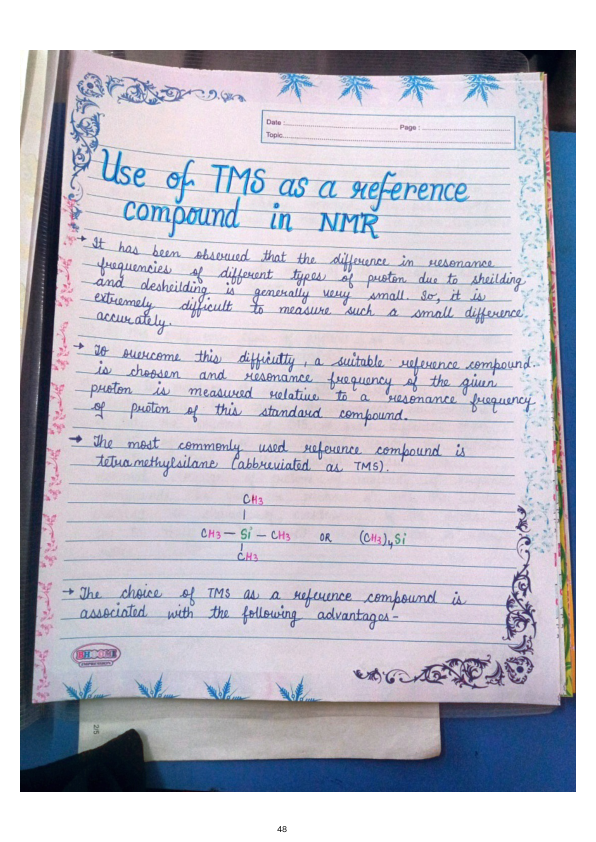 Date : Page :
Topic
Use of TMS as a reference
compound in NMR
→ It has been observed that the difference in resonance
frequencies of different types of proton due to sheilding
and desheilding is generally very small. So, it is
extremely difficult to measure such a small difference
accurately.
→ To overcome this difficutty, a suitable reference compound
is choosen and resonance frequency of the given
proton is measured relative to a resonance frequency
of proton of this standard compound.
→ The most commonly used reference compound is
tetramethylsilane (abbreviated as TMS).
CH3
CH3 — Si — CH3 OR (CH3)4Si
CH3
→ The choice of TMS as a reference compound is
associated with the following advantages-
2/5
48